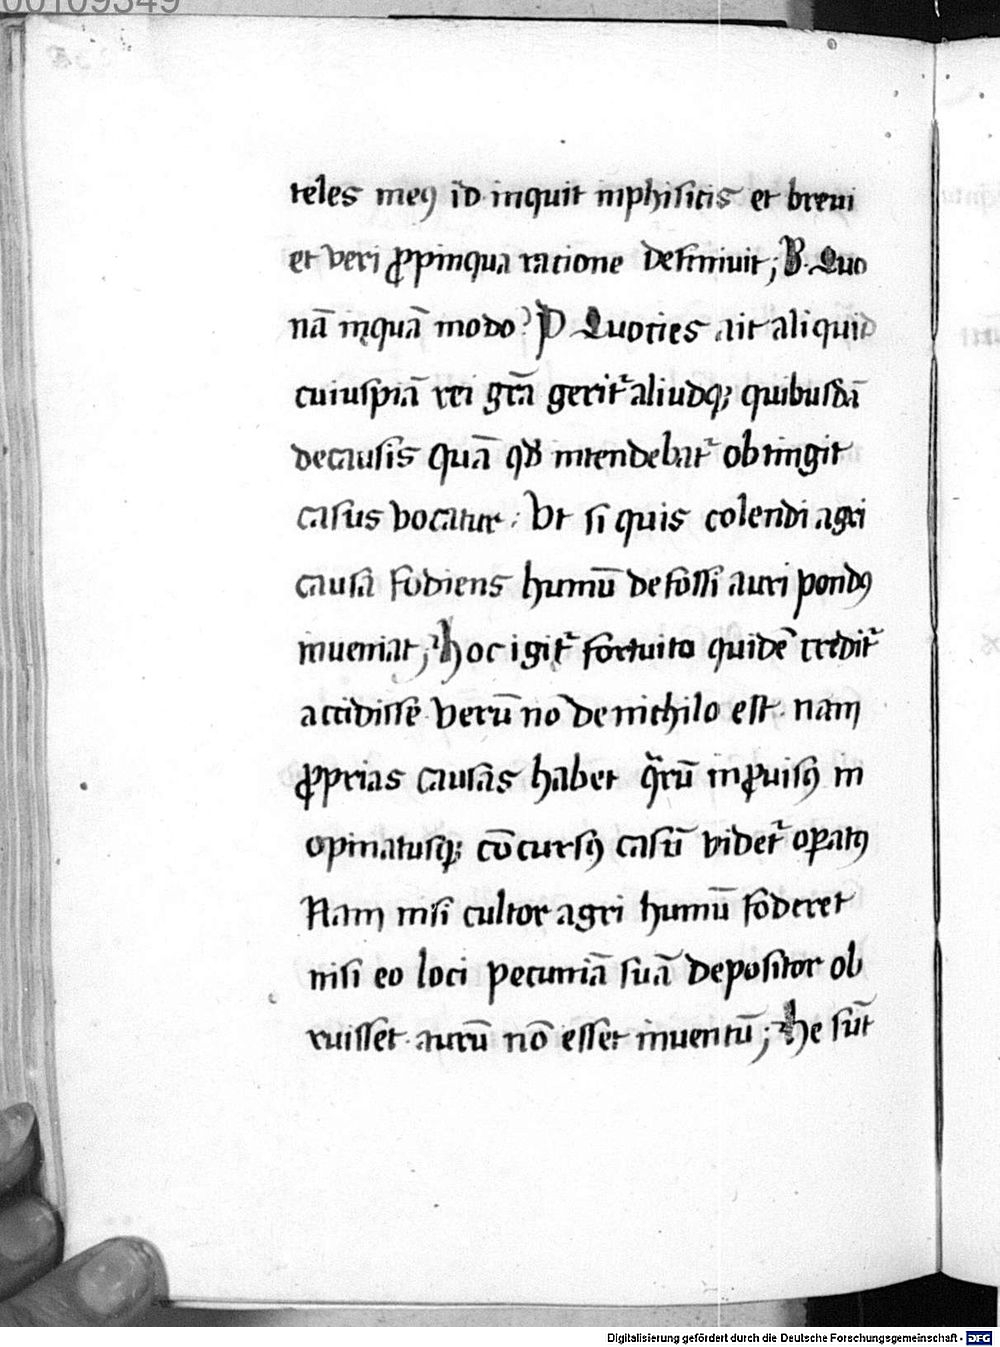 00109349
teles meꝰ id inquit inphisicis et breui
et veri ꝓpinqua racione definiuit; B. Quo
nā inquā modo? P Quoties ait aliquid
cuiuspiā rei gr̄a gerit᷑ aliudqꝫ quibusdā
decausis quā qđ intendebat᷑ obtingit
casus vocatur. Vt si quis colendi agri
causā fodiens humū defossi auri pondꝰ
inueniat; hoc igit᷑ fortuito quidē credit᷑
accidisse verū nō denichilo est. nam
ꝓprias causas habet qͣrū inꝓuisꝰ in
opinatusqꝫ cōcursꝰ casū videt᷑ oꝑatꝰ
Nam nisi cultor agri humū foderet
nisi eo loci pecuniā suā depositor ob
ruisset. aurū nō esset inuentū; he sūt
Digitalisierung gefördert durch die Deutsche Forschungsgemeinschaft - DFG